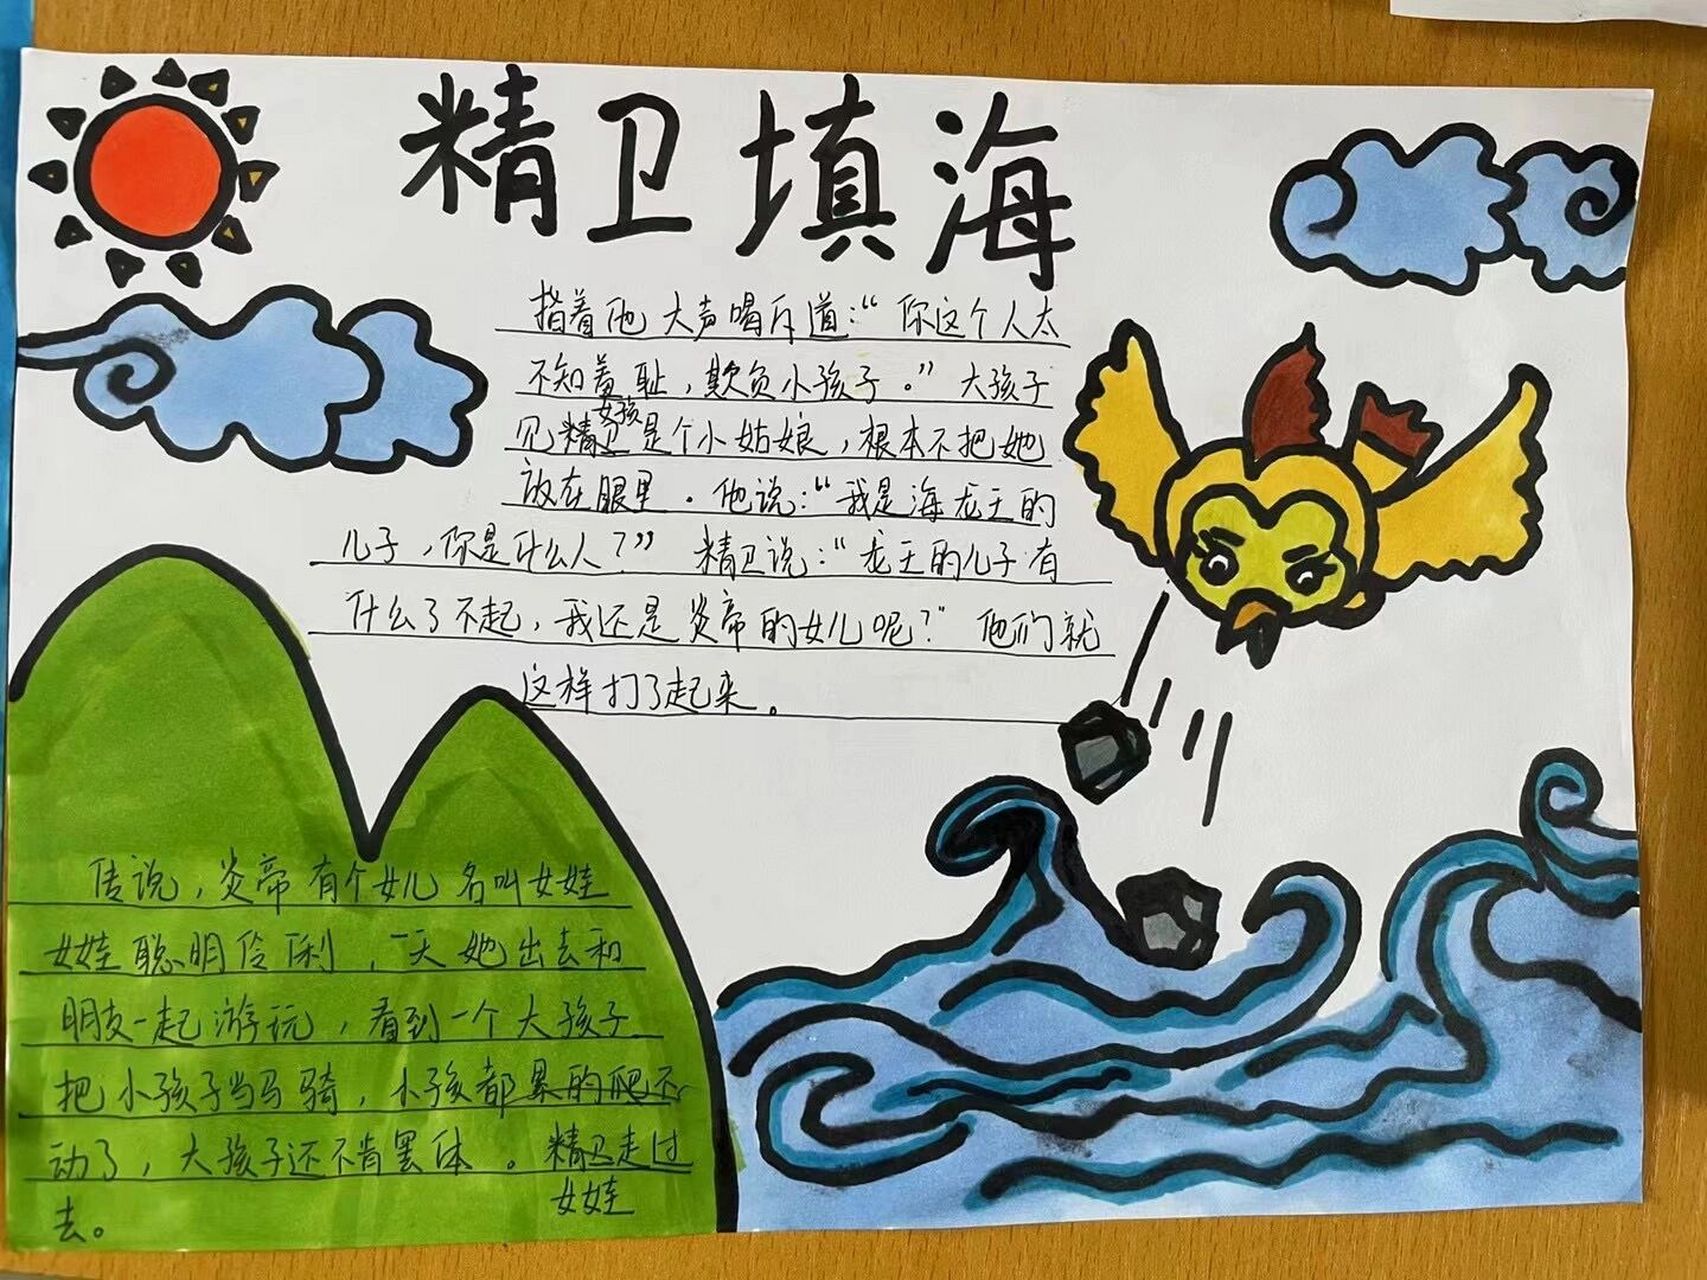 精卫填海
指着他大声喝斥道：“你这个人太
不知羞耻，欺负小孩子。”大孩子
女孩
见精卫是个小姑娘，根本不把她
放在眼里。他说：“我是海龙王的
儿子，你是什么人？”精卫说：“龙王的儿子有
什么了不起，我还是炎帝的女儿呢？”他们就
这样打了起来。
传说，炎帝有个女儿名叫女娃
女娃聪明伶俐，一天她出去和
朋友一起游玩，看到一个大孩子
把小孩子当马骑，小孩都累的爬不
动了，大孩子还不肯罢体。精卫走过
女娃
去。